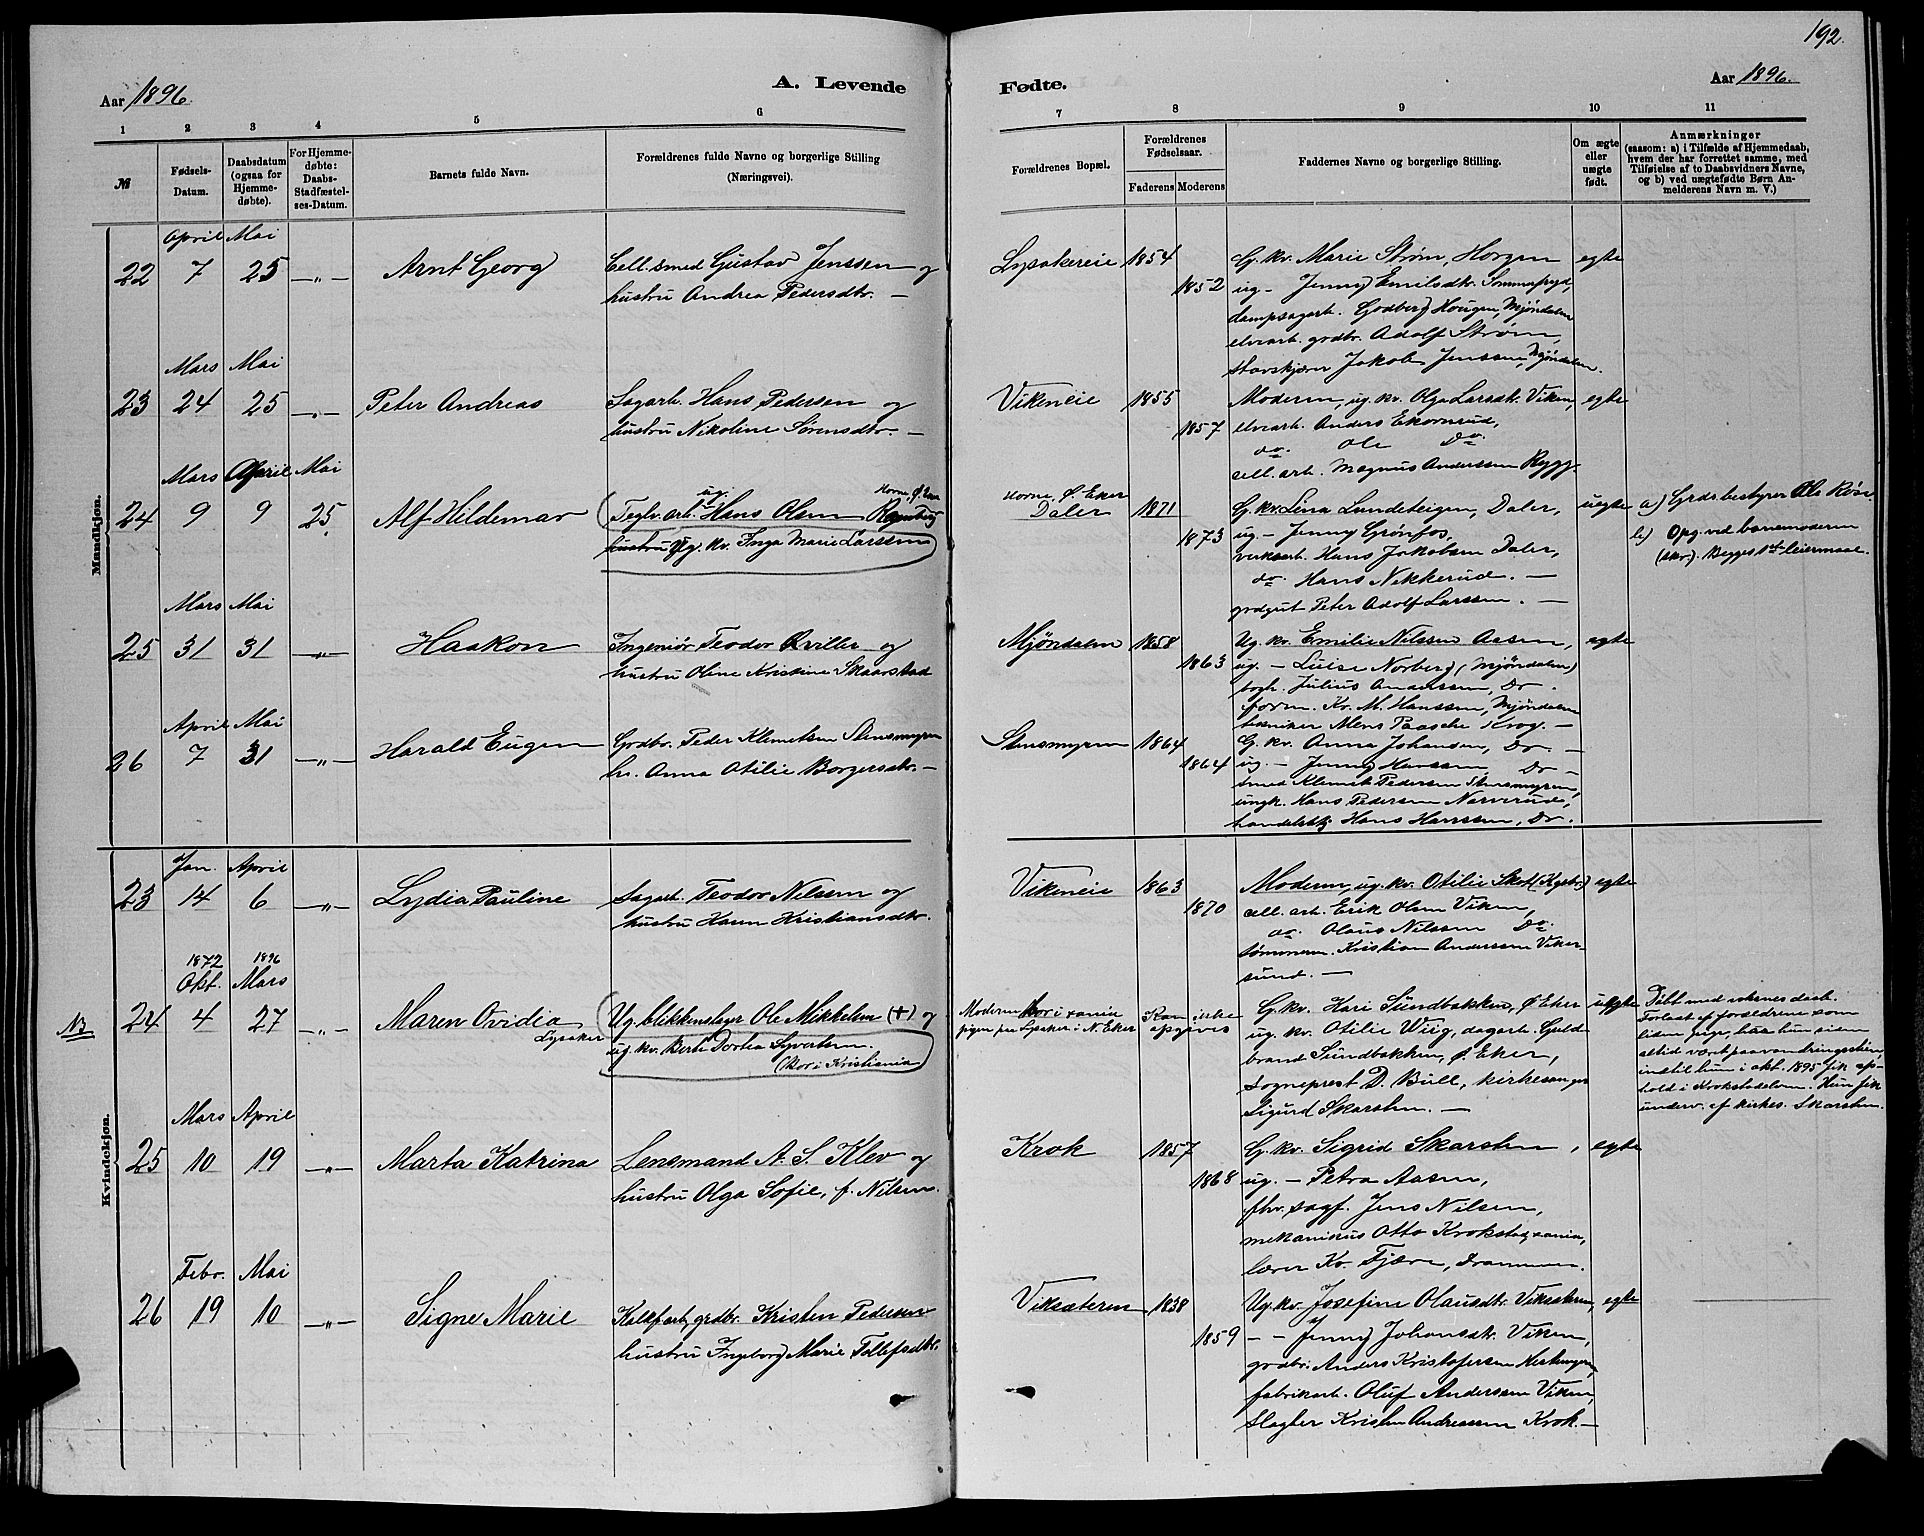 192.
Aar 1896.
A. Levende
Fødte.
Aar 1896.
1 2 3 4 5 6 7 8 9 10 11
№
Fødsels-
Datum.
Daabsdatum
(ogsaa for
Hjemme-
døbte).
For Hjemme-
døbte:
Daabs-
Stadfæstel-
ses-Datum.
Barnets fulde Navn.
Forældrenes fulde Navne og borgerlige Stilling
(Næringsvei).
Forældrenes Bopæl.
Forældrenes
Fødselsaar.
Faderens Moderens
Faddernes Navne og borgerlige Stilling.
Om ægte
eller
uægte
født.
Anmærkninger
(saasom: a) i Tilfælde af Hjemmedaab,
hvem der har forrettet samme, med
Tilføielse af to Daabsvidners Navne,
og b) ved uægtefødte Børn An-
melderens Navn m. V.)
Mandkjøn.
April Mai
22 7 25 —„— Arnt Georg
Cell. smed Gustav Jenssen og
hustru Andrea Pedersdtr. —
Lysakereie 1854
1852
G. kv. Marie Strøm, Horgen
ug — Jenny Emilsdtr.
dampsagarb. Godberg Hougen, Mjöndalen
elvearb. grdbr. Adolf Strøm,
Stavskjærer Jakob Jenssen, Mjöndalen.
egte
Mars Mai
23 24 25 —„— Peter Andreas
Sagarb. Hans Pedersen og
hustru Nikoline Sørensdtr. —
Vikeneie 1855
1857
Modern, ug. kv. Olga Larsdtr. Viken,
elvearb. Anders Ekornrud,
do. Ole Do.
cell. arb. Magnus Anderssen Rygg.
egte
Mars April Mai
24 9 9 25 Alf Hildemar
Teglv. arb. ug. Hans Olsen
hustru Ug. kv. Inga Marie Larssen
Horne, Ø. Eker
Daler 1871
1873
G. kv. Lina Lundeteigen, Daler,
ug — Jenny Grønfos,
verksarb. Hans Jakobsen Daler,
do. Hans Nikkerud. —
grdgut Peter Adolf Larssen. —
uegte
a) Grdsbestyrer Ole Röse
b) Opg. ved barnemoderen
(skr.). Begges 1ste leiermaal.
Mars Mai
25 31 31 —„— Haakon
Ingeniør Teodor Qviller og
hustru Oline Kristine Skaarstad
Mjöndalen 1858
1863
Ug. kv. Emilie Nilssen Aasen,
ug. — Luise Norberg (Mjöndalen)
bogh. Julius Anderssen, Do.
form. Kr. M. Hanssen, Mjöndalen
tekniker Mens Paasche Krog. —
egte
April Mai
26 7 31 —„— Harald Eugen
Grdbr. Peder Klemetsen Stensmyren
hu. Anna Otilie Borgersdtr. —
Stensmyren 1864
1864
G. kv. Anna Johansen, Do —
ug — Jenny Hanssen Do —
smed Klemet Pedersen Stensmyren,
ungk. Hans Pedersen Narverud,
handelsb. Hans Hanssen, Do.
Kvindekjøn.
Jan. April
23 14 6 —„— Lydia Pauline
Sagarb. Teodor Nilsen og
hustru Karen Kristiansdtr.
Vikeneie 1863
1870
Modern, ug. kv. Otilie Skot (Kysbr.)
cell. arb. Erik Olsen Viken,
do. Olaus Nilssen Do.
tømmerm. Kristian Anderssen Viker-
sund. —
egte
1872 1896
Okt. Mars
NB 24 4 27 —„— Maren Ovidia
Lysaker
Ug. blikkenslager Ole Mikkelsen (+) og
ug. kv. Berte Dortea Syvertsen.
(Bor i Kristiania
Moderen bor i xania
pigen paa Lysaker i N. Eker
Kan ikke
opgives
G. kv. Kari Sundbakken, Ø. Eker
ug. kv. Otilie Wiig, dagarb. Guld-
brand Sundbakken, Ø. Eker,
Sogneprest D. Bull, kirkesanger
Sigurd Skarsten. —
uegte
Döbt med voksnes daab.
Forlatt af forældrene som
liden pige, har hun siden
altid været paa vandringsstien,
indtil hun i okt. 1895 fik op-
hold i Krokstadelven. Hun fik
underv. af kirkes. Skarsten.
Mars April
25 10 19 —„— Marta Katrina
Lensmand A. S. Klev og
hustru Olga Sofie, f. Nilsen.
Krok 1857
1868
G. kv. Sigrid Skarsten,
ug. — Petra Aasen,
fhv. sagf. Jens Nilsen,
mekanikus Otto Krokstad, xania,
lærer Kr. Fjære, Drammen.
egte
Febr. Mai
26 19 10 —„— Signe Marie
Kalkfarb., grdbr. Kristen Pedersen
hustru Ingeborg Marie Tollefsdtr.
Viksæteren 1838
1859
Ug. kv. Josefine Olausdtr. Viksæteren,
— — Jenny Johansdtr. Viken,
grdbr. Anders Kristofersen
fabrikarb. Oluf Anderssen Viken,
Slagter Kristen Andreassen Krok. —
egte